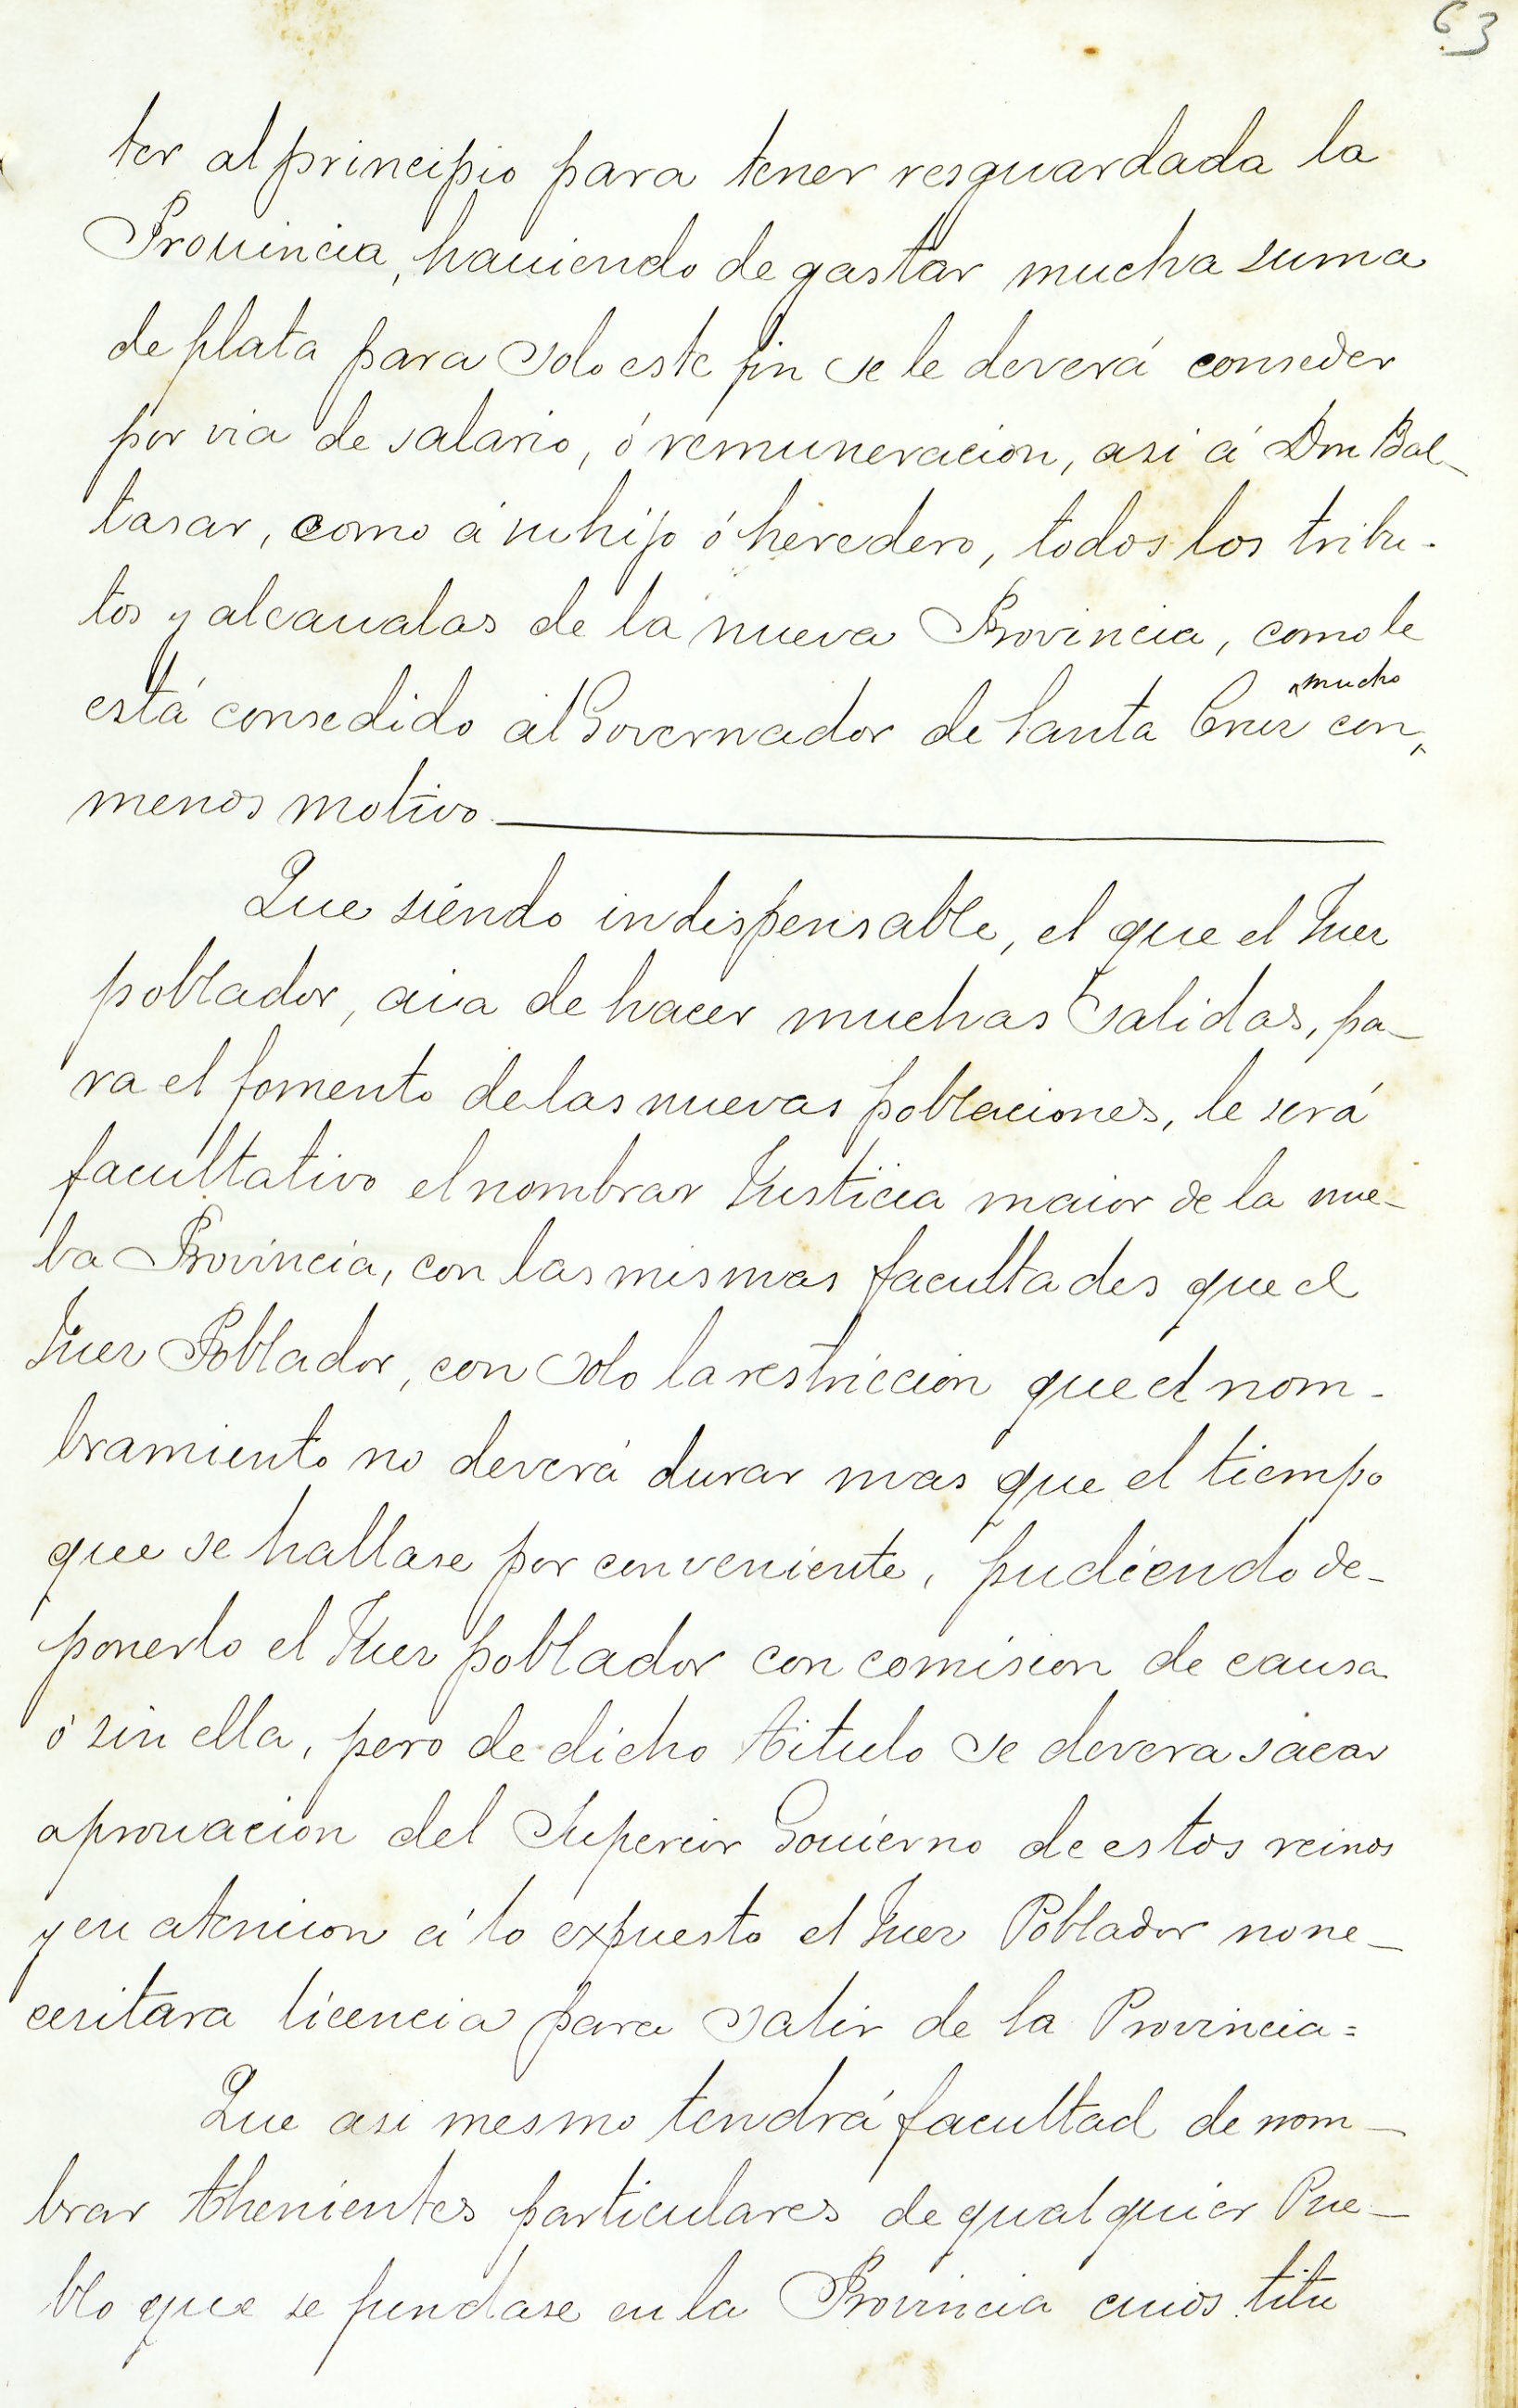 63
ter al principio para tener resguardada la
Prouincia, hauiendo de gastar mucha suma
de plata para solo este fin se le deverá conseder
por via de salario, ó remuneracion, asi á Dm Bal-
tasar, como á su hijo ó heredero, todos los tribu-
tos y alcaualas de la nueva Provincia, como le
está consedido al Governador de Santa Cruz con mucho
menos motivo
Que siendo indispensable, el que el Juez
poblador, aia de hacer muchas salidas, pa-
ra el fomento de las nuevas poblaciones, le será
facultativo el nombrar Justicia maior de la nue-
ba Provincia, con las mismas facultades que el
Juez Poblador, con solo la restriccion que el nom-
bramiento no deverá durar mas que el tiempo
que se hallase por conveniente, pudiendo de-
ponerlo el Juez poblador con comision de causa
ó sin ella, pero de dicho titulo se devera sacar
aprouacion del Superior Gouierno de estos reinos
y en atencion á lo expuesto el Juez Poblador no ne-
cesitara licencia para salir de la Provincia=
Que asi mesmo tendrá facultad de nom-
brar thenientes particulares de qualquier Pue-
blo que se fundase en la Provincia cuios titu